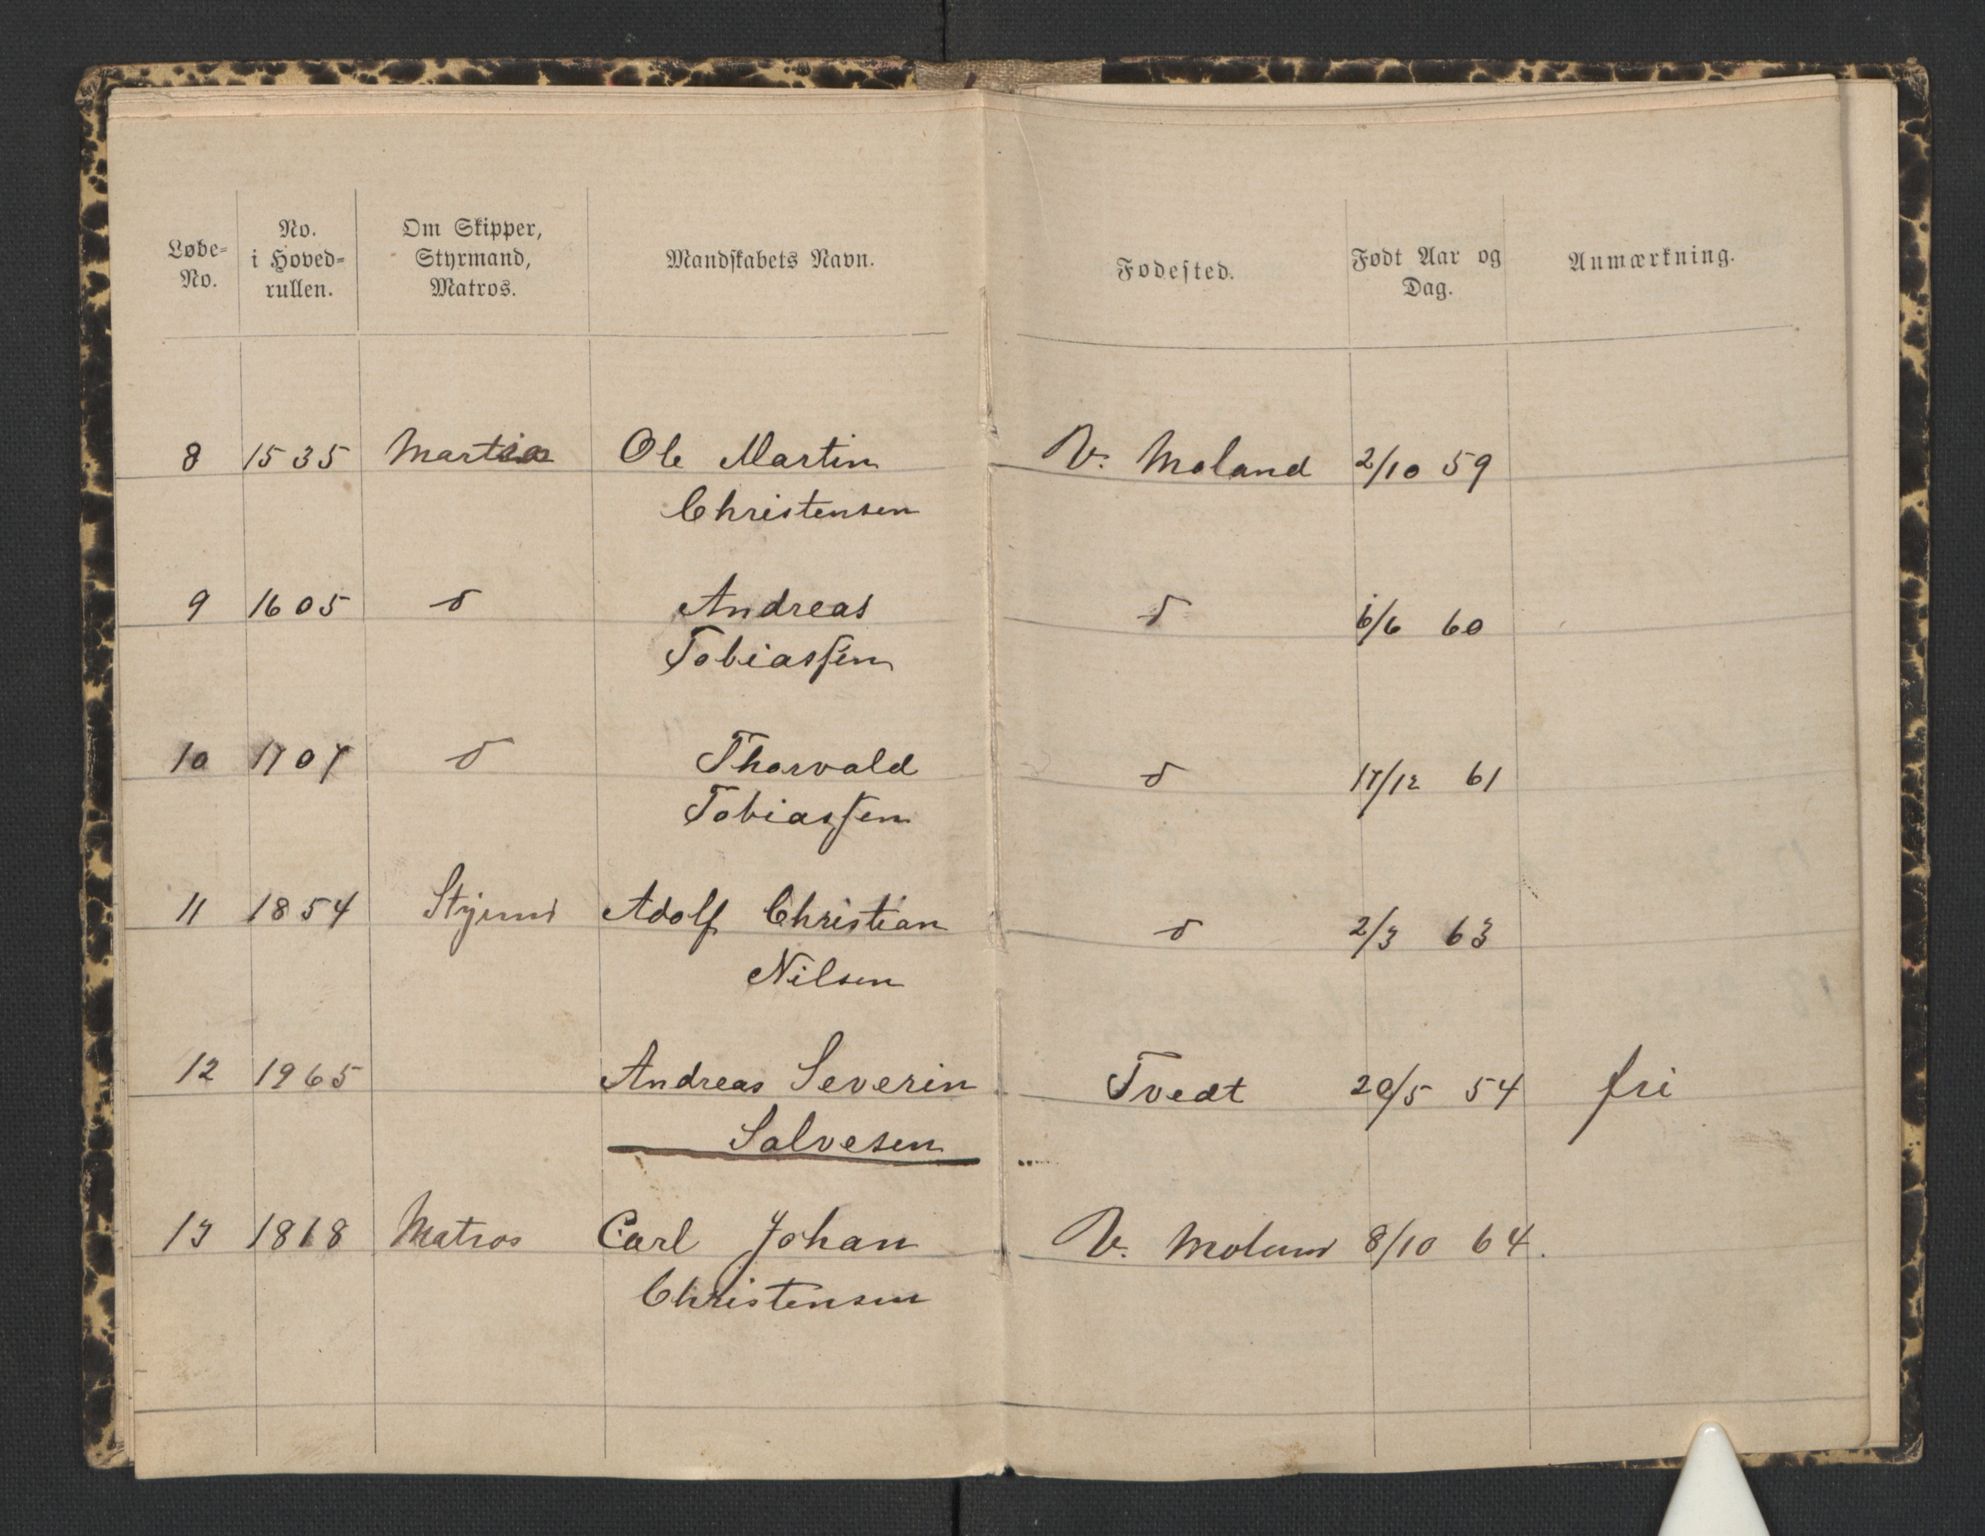 Løbe-No. | No. i Hoved-rullen. | Om Skipper, Styrmand, Matros. | Mandskabets Navn. | Fødested. | Født Aar og Dag. | Anmærkning.
8 | 1535 | | Ole Martin | V. Moland | 2/10 59
Christensen
9 | 1605 | do | Andreas | do | 6/6 60
Tobiassen
10 | 1707 | do | Thorvald | do | 17/12 61
Tobiassen
11 | 1854 | Styrmd | Adolf Christian | do | 2/3 63
Nilsen
12 | 1965 | | Andreas Severin | Tvedt | 20/5 54 | fri
Salvesen
13 | 1818 | Matros | Carl Johan | V. Moland | 8/10 64.
Christensen